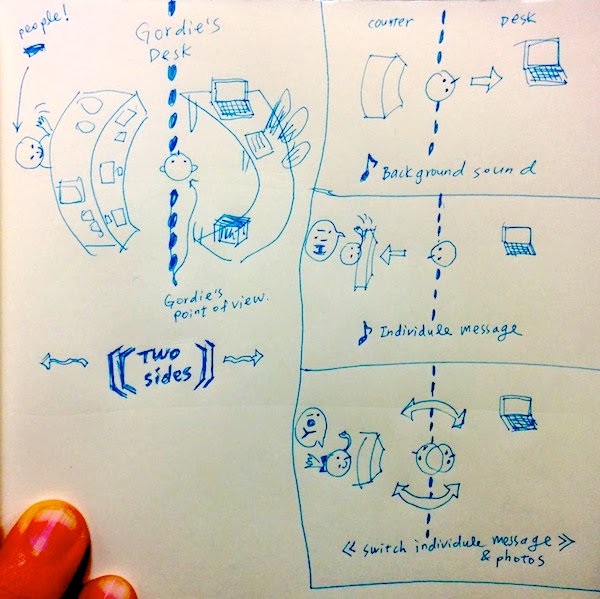 people!
Gordie's
Desk
Gordie's
point of view.
TWO
sides
counter
DESK
Background sound
Individule message
switch individule message
& photos